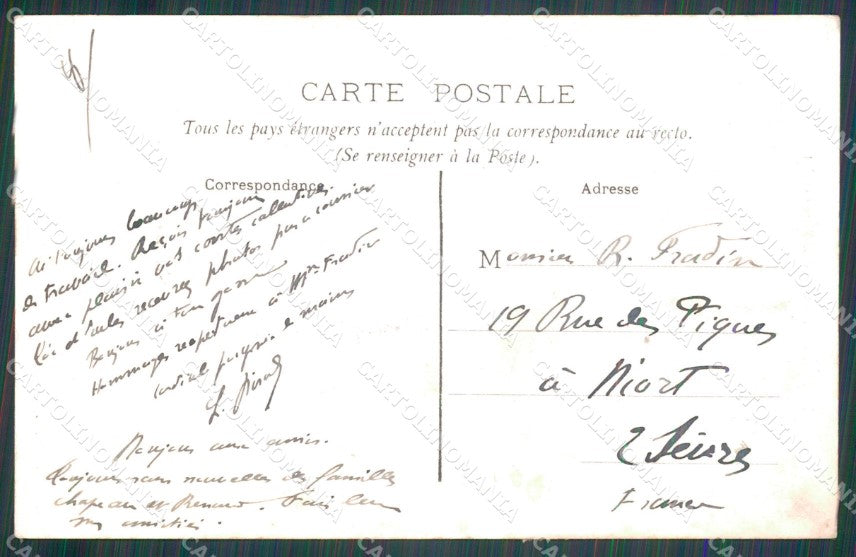 CARTE POSTALE
Tous les pays étrangers n'acceptent pas la correspondance au recto.
(Se renseigner à la Poste).
Correspondance
Ai toujours beaucoup
de travail. Reçois toujours
avec plaisir vos cartes
et photos par courrier
Bonjour à ton
Hommages respectueux à Mme Fradin
cordiale poignée de mains
L.
Bonjour aux amis.
Toujours sans nouvelles des familles
Chapeau et Renaud. Fais leur
mes amitiés.
Adresse
Monsieur R. Fradin
19 Rue des Pigues
à Niort
2 Sèvres
France
CARTOLINOMANIA